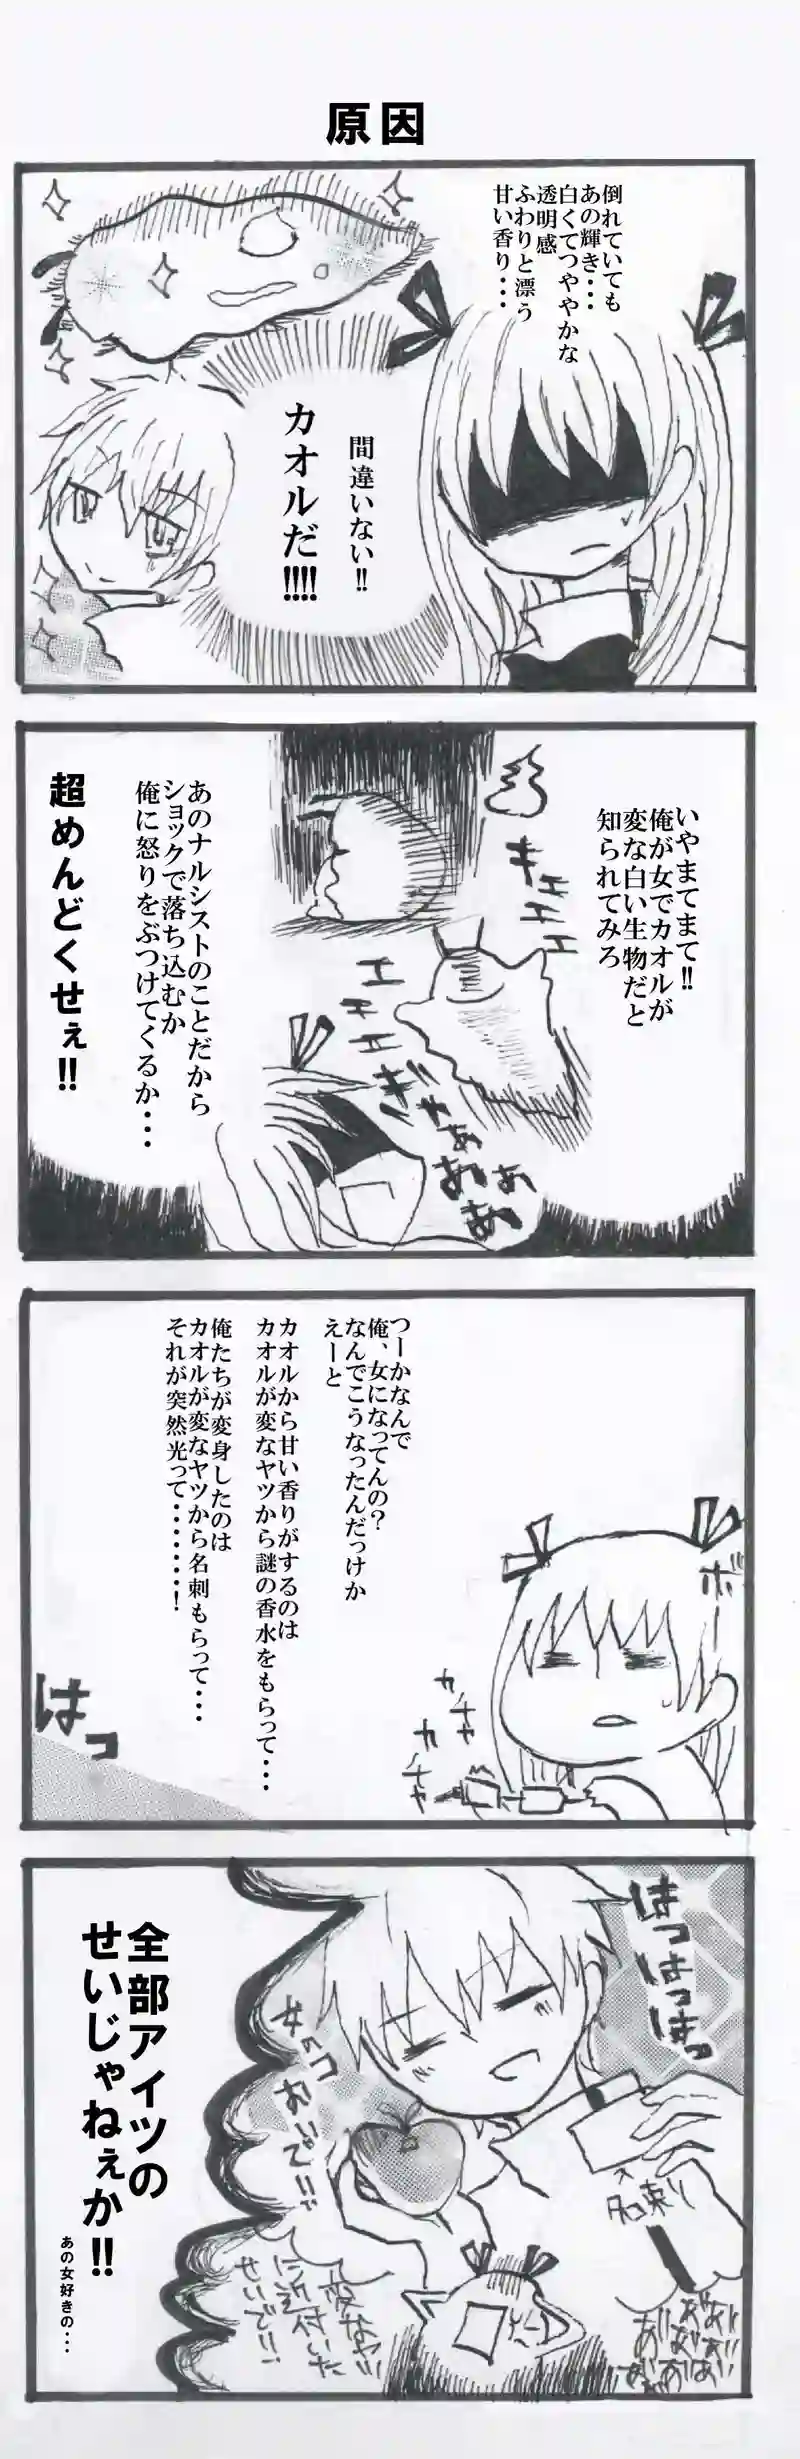 原因
倒れていても
あの輝き・・・
白くてつややかな
透明感
ふわりと漂う
甘い香り・・・
間違いない!!
カオルだ!!!!
いやまてまて!!
俺が女でカオルが
変な白い生物だと
知られてみろ
キェェェ
エエエエ
ぎゃああああぁ
あのナルシストのことだから
ショックで落ち込むか
俺に怒りをぶつけてくるか・・・
超めんどくせぇ!!
ボー
カチャ
カチャ
つーかなんで
俺、女になってんの?
なんでこうなったんだっけか
えーと
カオルから甘い香りがするのは
カオルが変なヤツから謎の香水をもらって・・・
俺たちが変身したのは
カオルが変なヤツから名刺もらって・・・
それが突然光って・・・・・・・!
はっ
はっはっはっ
女のコ
おいで!!
名刺
変なヤツ
に近付いた
せいで!!
全部アイツの
せいじゃねぇか!!
あの女好きの・・・